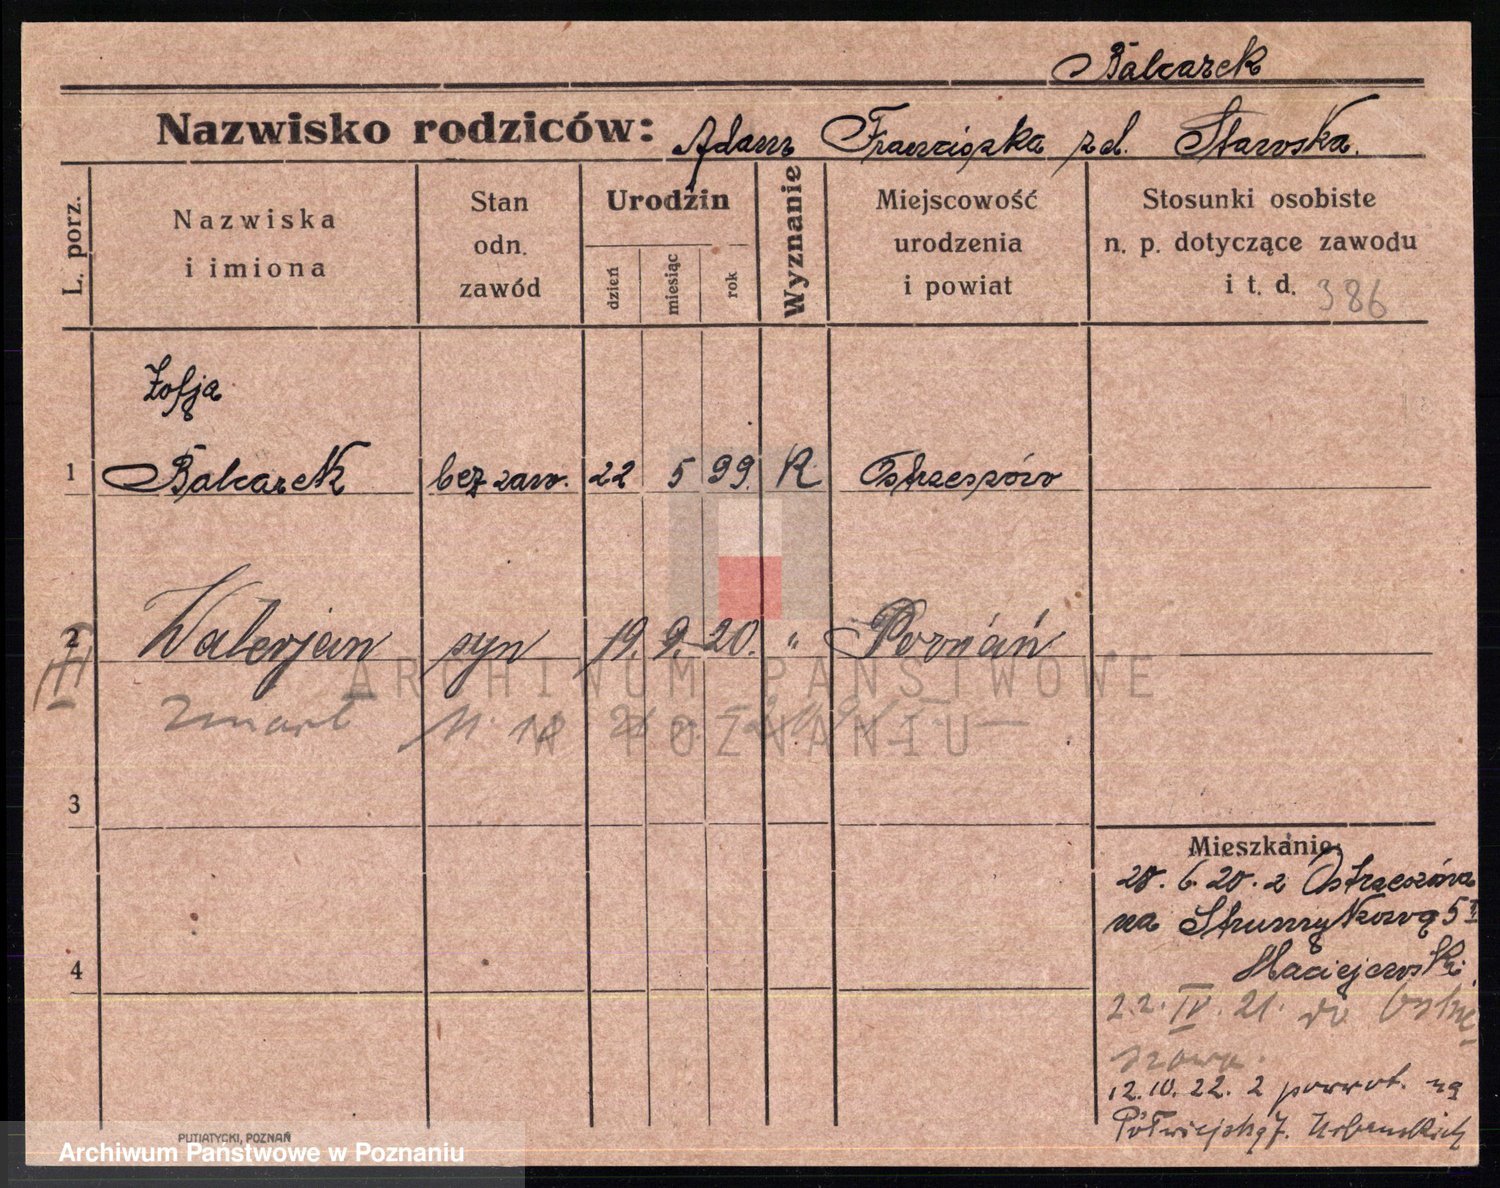 Balcarek
Nazwisko rodziców: Adam Franciszka zd. Staroska.
L. porz.
Nazwiska
i imiona
Stan
odn.
zawód
Urodzin
dzień
miesiąc
rok
Wyznanie
Miejscowość
urodzenia
i powiat
Stosunki osobiste
n. p. dotyczące zawodu
i t. d. 386
Zofja
1 Balcarek bez zaw. 22 5 99. R. Ostrzeszów
2 Walerjan syn 19. 9. 20. " Poznań
III
zmarł 11. 12
ARCHIWUM PAŃSTWOWE
W POZNANIU
3
4
Mieszkanie:
28. 6. 20. z Ostrzeszowa
na Strumykową 5 I
Maciejewski
22. IV. 21. do Ostrze
szowa.
12. 10. 22. z powrot. na
Półwiejską 7. Urbanskich
PUTIATYCKI, POZNAŃ
Archiwum Państwowe w Poznaniu